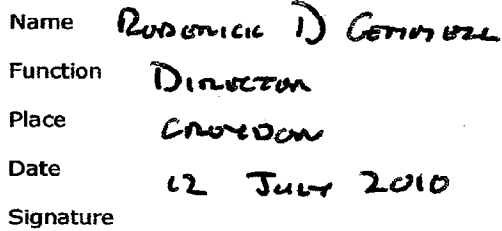 Name Roderick D Gemmell
Function Director
Place Croydon
Date 12 July 2010
Signature